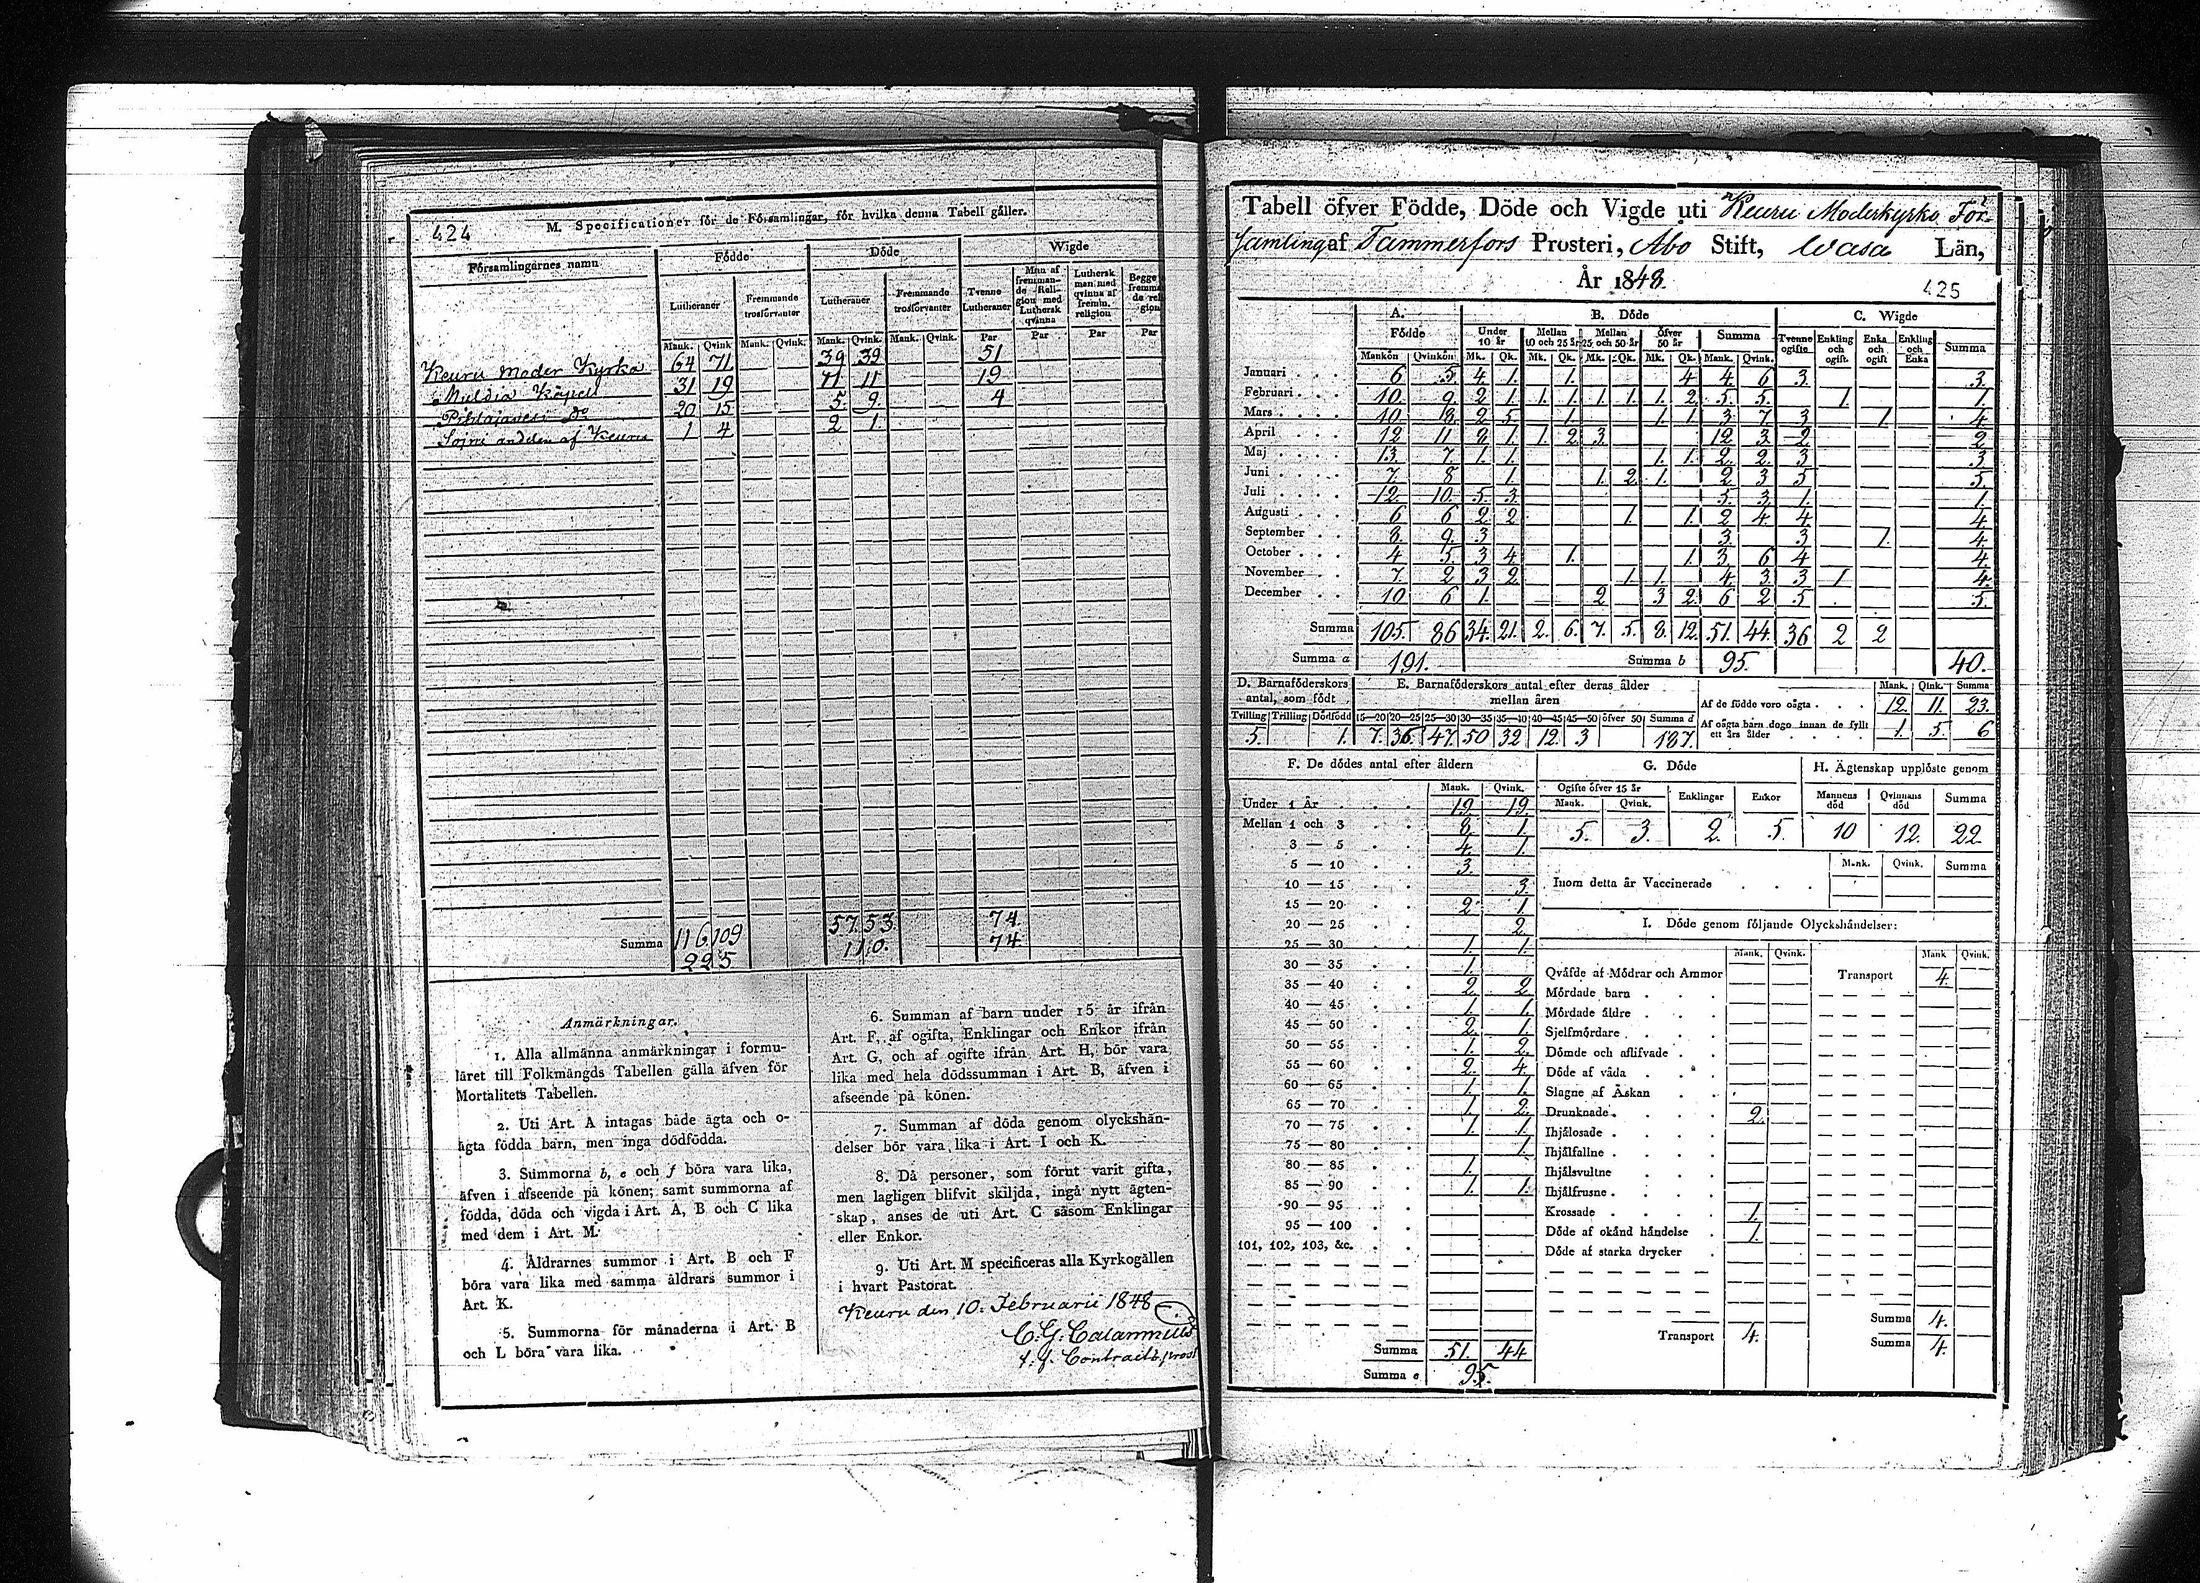 424
M. Specificationer för de Församlingar, för hvilka denna Tabell gäller.
Församlingarnes namn Födde Döde Wigde
Lutheraner Fremmande trosförvanter Lutheraner Fremmande trosförvanter Tvenne Lutheraner Man af fremmande Religion med Luthersk qvinna Luthersk man med qvinna af fremm. religion Begge fremmande religion
Mank. Qvink. Mank. Qvink. Mank. Qvink. Mank. Qvink. Par Par Par Par
Keuru Moder Kyrka 64 71 39 39 51
Multia Kapell 31 19 11 11 19
Pihlajavesi do 20 15 5. 9. 4
Soini andelen af Keuru 1 4 2 1
57. 53. 74
Summa 116 109 110. 74
225
Anmärkningar.
1. Alla allmänna anmärkningar i formu-
läret till Folkmängds Tabellen gälla äfven för
Mortalitets Tabellen.
2. Uti Art. A intagas både ägta och o-
ägta födda barn, men inga dödfödda.
3. Summorna b, e och f böra vara lika,
äfven i afseende på könen; samt summorna af
födda, döda och vigda i Art. A, B och C lika
med dem i Art. M.
4. Åldrarnes summor i Art. B och F
böra vara lika med samma åldrars summor i
Art. K.
5. Summorna för månaderna i Art. B
och L böra vara lika.
6. Summan af barn under 15 år ifrån
Art. F, af ogifta, Enklingar och Enkor ifrån
Art. G, och af ogifte ifrån Art. H, bör vara
lika med hela dödssumman i Art. B, äfven i
afseende på könen.
7. Summan af döda genom olyckshän-
delser bör vara lika i Art. I och K.
8. Då personer, som förut varit gifta,
men lagligen blifvit skiljda, ingå nytt ägten-
skap, anses de uti Art. C såsom Enklingar
eller Enkor.
9. Uti Art. M specificeras alla Kyrkogällen
i hvart Pastorat.
Keuru den 10. Februarii 1848
C. G. Calamnius
t. f. Contractsprost
Tabell öfver Födde, Döde och Vigde uti Keuru Moderkyrko För-
samling af Tammerfors Prosteri, Åbo Stift, Wasa Län,
År 1848.
425
A. B. Döde C. Wigde
Födde Under 10 år Mellan 10 och 25 år Mellan 25 och 50 år Öfver 50 år Summa Tvenne ogifte Enkling och ogift Enka och ogift Enkling och Enka Summa
Mankön Qvinkön Mk. Qk. Mk. Qk. Mk. Qk. Mk. Qk. Mank. Qvink.
Januari 6 5. 4. 1. 1. 4 4. 6 3. 3.
Februari 10. 9. 2 1. 1. 1. 1. 1. 1. 2. 5. 5. 1. 1.
Mars 10 18. 2 5. 1. 1. 1. 3 7. 3 1 4
April 12 11 8. 1. 1. 2 3. 12 3. 2 2
Maj 13. 7. 1. 1. 1. 1. 2. 2. 3 3
Juni 7. 8 1. 1. 2. 1. 2 3 5 5.
Juli 12. 10. 5. 3. 5. 3. 1. 1.
Augusti 6 6 2 2 1. 1. 2 4. 4. 4.
September 8. 9. 3. 3. 3 1. 4.
October 4 5. 3 4. 1. 1. 3. 6 4 4.
November 7. 2 3 2. 1. 1. 4. 3 3 1 4.
December 10 6 1. 2 3 2. 6 2 5 5.
Summa 105. 86 34. 21. 2. 6. 7. 5. 8. 12. 51. 44. 36 2 2
Summa a 191. Summa b 95. 40.
D. Barnaföderskors antal, som födt E. Barnaföderskors antal efter deras ålder mellan åren Mank. Qink. Summa
Af de födde voro oägta 12. 11. 23.
Tvilling Trilling Dödfödd 15—20 20—25 25—30 30—35 35—40 40—45 45—50 öfver 50 Summa d
5. 1. 7. 36. 47. 50 32 12. 3 187.
Af oägta barn dogo innan de fyllt ett års ålder 1. 5. 6
F. De dödes antal efter åldern
Mank. Qvink.
Under 1 År 19 19.
Mellan 1 och 3 8. 1.
3 — 5 4. 1.
5 — 10 3.
10 — 15 3.
15 — 20 2. 1.
20 — 25 2
25 — 30 1. 1.
30 — 35 1.
35 — 40 2 2
40 — 45 1. 1.
45 — 50 2. 1.
50 — 55 1. 2.
55 — 60 2. 4.
60 — 65 1. 1.
65 — 70 1. 2.
70 — 75 1. 1.
75 — 80 1.
80 — 85 1.
85 — 90 1. 1.
90 — 95
95 — 100
101, 102, 103, &c.
Summa 51. 44
Summa e 95.
G. Döde H. Ägtenskap upplöste genom
Ogifte öfver 15 år Enklingar Enkor Mannens död Qvinnans död Summa
Mank. Qvink.
5. 3. 2. 5. 10 12. 22.
Mank. Qvink. Summa
Inom detta år Vaccinerade
I. Döde genom följande Olyckshändelser:
Mank. Qvink. Mank Qvink.
Qväfde af Mödrar och Ammor Transport 4.
Mördade barn
Mördade äldre
Sjelfmördare
Dömde och aflifvade
Döde af våda
Slagne af Åskan
Drunknade 2.
Ihjälosade
Ihjälfallne
Ihjälsvultne
Ihjälfrusne
Krossade 1.
Döde af okänd händelse 1.
Döde af starka drycker
Summa 4.
Transport 4. Summa 4.